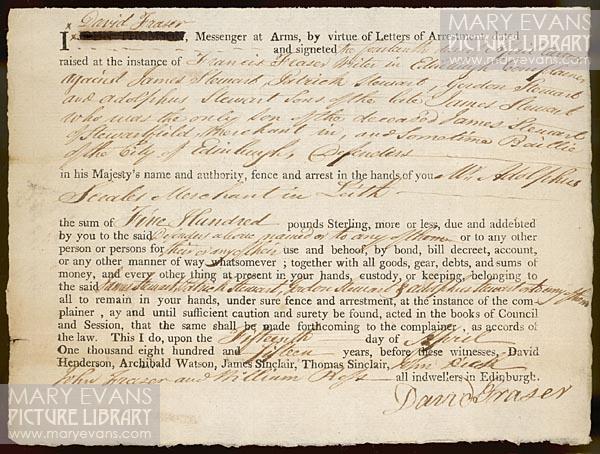 David Fraser
I, Messenger at Arms, by virtue of Letters of Arrestment, dated
and signeted the
raised at the instance of Francis Fraser Writer in Edinburgh Complainer
against James Stewart, Patrick Stewart, Gordon Stewart
and Adolphus Stewart Sons of the late James Stewart
who was the only Son of the deceased James Stewart
of Stewartfield, Merchant in, and Sometime Baillie
of the City of Edinburgh, Defenders
in his Majesty's name and authority, fence and arrest in the hands of you Mr Adolphus
Scales Merchant in Leith
the sum of Nine Hundred pounds Sterling, more or less, due and addebted
by you to the said Defenders above named or to any of them or to any other
person or persons for their or any of their use and behoof, by bond, bill decreet, account,
or any other manner of way whatsomever ; together with all goods, gear, debts, and sums of
money, and every other thing at present in your hands, custody, or keeping, belonging to
the said James Stewart Patrick Stewart, Gordon Stewart & Adolphus Stewart or to any of them
all to remain in your hands, under sure fence and arrestment, at the instance of the com-
plainer , ay and until sufficient caution and surety be found, acted in the books of Council
and Session, that the same shall be made forthcoming to the complainer , as accords of
the law. This I do, upon the Fifteenth day of April
One thousand eight hundred and fifteen years, before these witnesses, David
Henderson, Archibald Watson, James Sinclair, Thomas Sinclair, John Dick
John Fraser and William Ross all indwellers in Edinburgh.
David Fraser
MARY EVANS
PICTURE LIBRARY
www.maryevans.com
MARY EVANS
PICTURE LIBRARY
www.maryevans.com